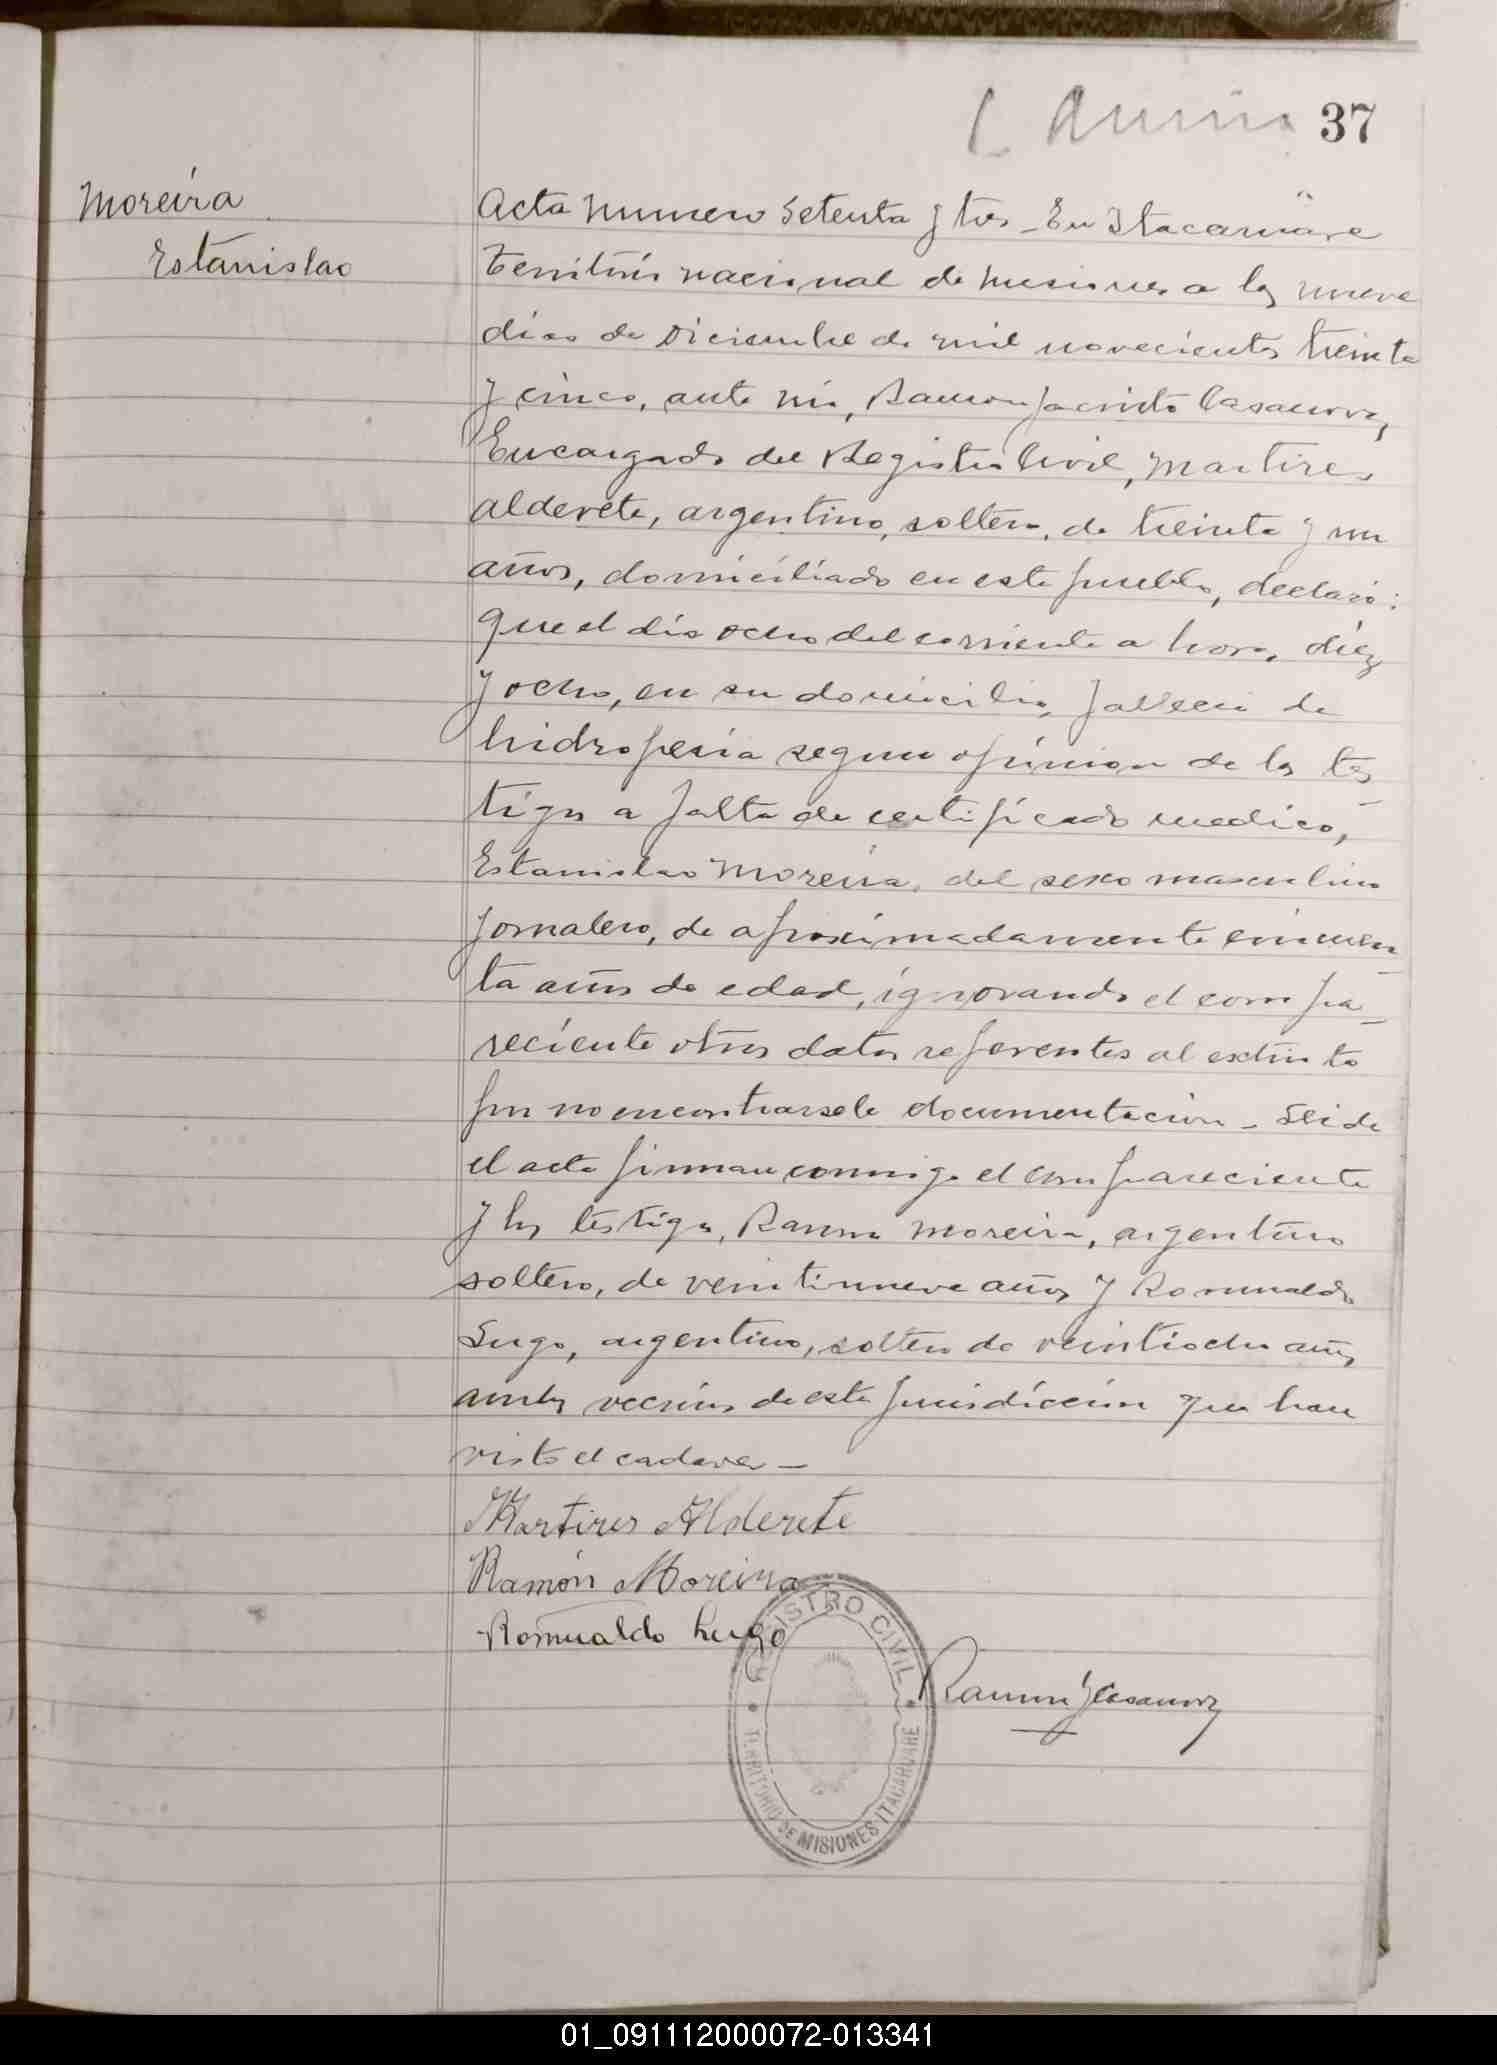 37
Moreira
Estanislao
Acta numero setenta y tres - En Itacaruare
Territorio nacional de Misiones a los nueve
dias de Diciembre de mil novecientos treinta
y cinco, ante mi, Ramon Jacinto Casanova,
Encargado del Registro Civil, Martires
Alderete, argentino, soltero, de treinta y un
años, domiciliado en este pueblo, declaró:
Que el dia ocho del corriente a horas diez
y ocho, en su domicilio, fallecio de
hidropesia segun opinion de los tes
tigos a falta de certificado medico,
Estanislao Moreira, del sexo masculino
jornalero, de aproximadamente cincuen
ta años de edad, ignorando el compa_
reciente otros datos referentes al extinto
por no encontrarsele documentacion - Leida
el acta firman conmigo el compareciente
y los testigos, Ramon Moreira, argentino
soltero, de veintinueve años y Romualdo
Lugo, argentino, soltero de veintiocho años,
ambos vecinos de esta jurisdiccion que han
visto el cadaver -
Martires Alderete
Ramón Moreira
Romualdo Lugo
Ramon J Casanova
REGISTRO CIVIL
TERRITORIO DE MISIONES ITACARUARE
01_091112000072-013341